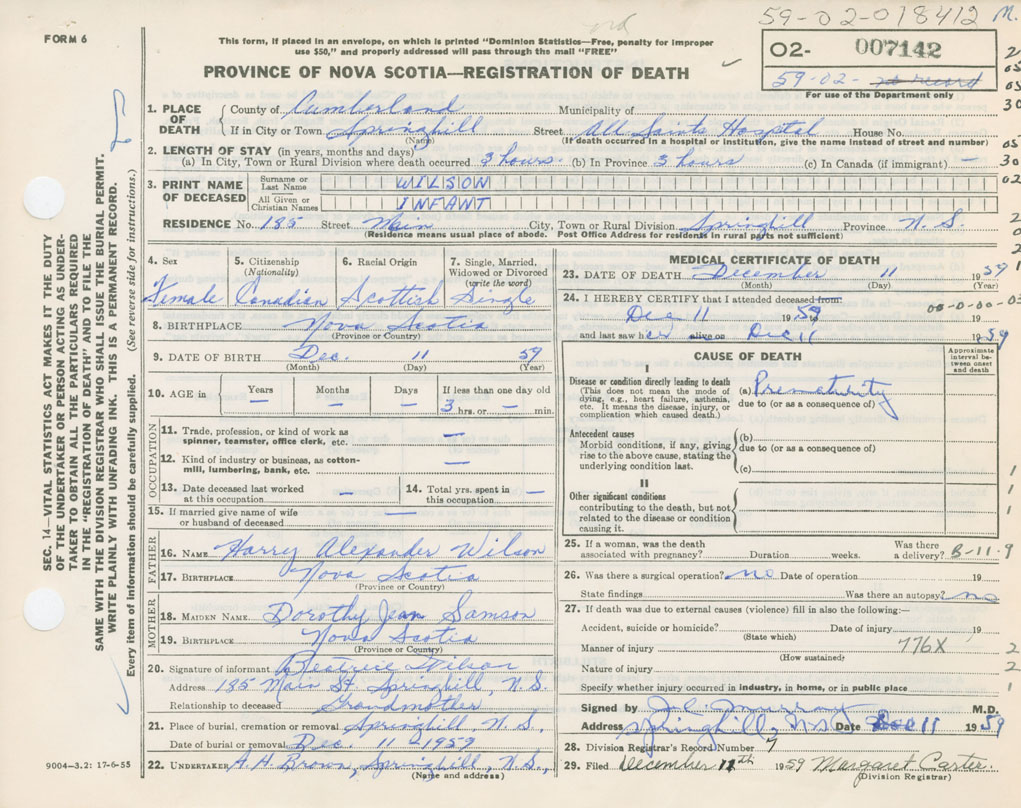 59-02-018412 M.
FORM 6
This form, if placed in an envelope, on which is printed "Dominion Statistics—Free, penalty for improper
use $50," and properly addressed will pass through the mail "FREE"
02- 007142
59-02-
For use of the Department only
PROVINCE OF NOVA SCOTIA—REGISTRATION OF DEATH
SEC. 14—VITAL STATISTICS ACT MAKES IT THE DUTY
OF THE UNDERTAKER OR PERSON ACTING AS UNDER-
TAKER TO OBTAIN ALL THE PARTICULARS REQUIRED
IN THE "REGISTRATION OF DEATH" AND TO FILE THE
SAME WITH THE DIVISION REGISTRAR WHO SHALL ISSUE THE BURIAL PERMIT.
WRITE PLAINLY WITH UNFADING INK. THIS IS A PERMANENT RECORD.
Every item of information should be carefully supplied. (See reverse side for instructions.)
1. PLACE OF DEATH
County of Cumberland Municipality of
If in City or Town Springhill Street All Saints Hospital House No.
(Name) (If death occurred in a hospital or institution, give the name instead of street and number)
2. LENGTH OF STAY (in years, months and days)
(a) In City, Town or Rural Division where death occurred 3 hours. (b) In Province 3 hours (c) In Canada (if immigrant) —
3. PRINT NAME OF DECEASED
Surname or Last Name WILSON
All Given or Christian Names INFANT
RESIDENCE No. 185 Street Main City, Town or Rural Division Springhill Province N.S.
(Residence means usual place of abode. Post Office Address for residents in rural parts not sufficient)
4. Sex 5. Citizenship (Nationality) 6. Racial Origin 7. Single, Married, Widowed or Divorced (write the word)
Female Canadian Scottish Single
8. BIRTHPLACE Nova Scotia
(Province or Country)
9. DATE OF BIRTH Dec. 11 59
(Month) (Day) (Year)
10. AGE in Years Months Days If less than one day old
— — — 3 hrs. or — min.
OCCUPATION
11. Trade, profession, or kind of work as spinner, teamster, office clerk, etc. —
12. Kind of industry or business, as cotton-mill, lumbering, bank, etc. —
13. Date deceased last worked at this occupation —
14. Total yrs. spent in this occupation —
15. If married give name of wife or husband of deceased —
FATHER
16. NAME Harry Alexander Wilson
17. BIRTHPLACE Nova Scotia
(Province or Country)
MOTHER
18. MAIDEN NAME Dorothy Jean Samson
19. BIRTHPLACE Nova Scotia
(Province or Country)
20. Signature of informant Beatrice Wilson
Address 185 Main St. Springhill, N.S.
Relationship to deceased Grandmother
21. Place of burial, cremation or removal Springhill N.S.
Date of burial or removal Dec. 11 - 1959
22. UNDERTAKER A.H. Brown, Springhill, N.S.,
(Name and address)
9004—3.2: 17-6-55
MEDICAL CERTIFICATE OF DEATH
23. DATE OF DEATH December 11 1959
(Month) (Day) (Year)
24. I HEREBY CERTIFY that I attended deceased from:
Dec 11 1959 to 19
00-0-00-03
and last saw her alive on Dec 11 1959
CAUSE OF DEATH
Approximate interval between onset and death
I
Disease or condition directly leading to death
(This does not mean the mode of dying, e.g., heart failure, asthenia, etc. It means the disease, injury, or complication which caused death.)
(a) Prematurity
due to (or as a consequence of)
Antecedent causes
Morbid conditions, if any, giving rise to the above cause, stating the underlying condition last.
(b)
due to (or as a consequence of)
(c)
II
Other significant conditions
contributing to the death, but not related to the disease or condition causing it.
25. If a woman, was the death associated with pregnancy? Duration weeks. Was there a delivery? B-11-9
26. Was there a surgical operation? no Date of operation 19
State findings Was there an autopsy? no
27. If death was due to external causes (violence) fill in also the following:—
Accident, suicide or homicide? Date of injury 19
(State which)
Manner of injury 776X
(How sustained)
Nature of injury
Specify whether injury occurred in industry, in home, or in public place
Signed by M.D.
Address Springhill, N.S. Date Dec 11 1959
28. Division Registrar's Record Number 7
29. Filed December 11th 1959 Margaret Carter.
(Division Registrar)